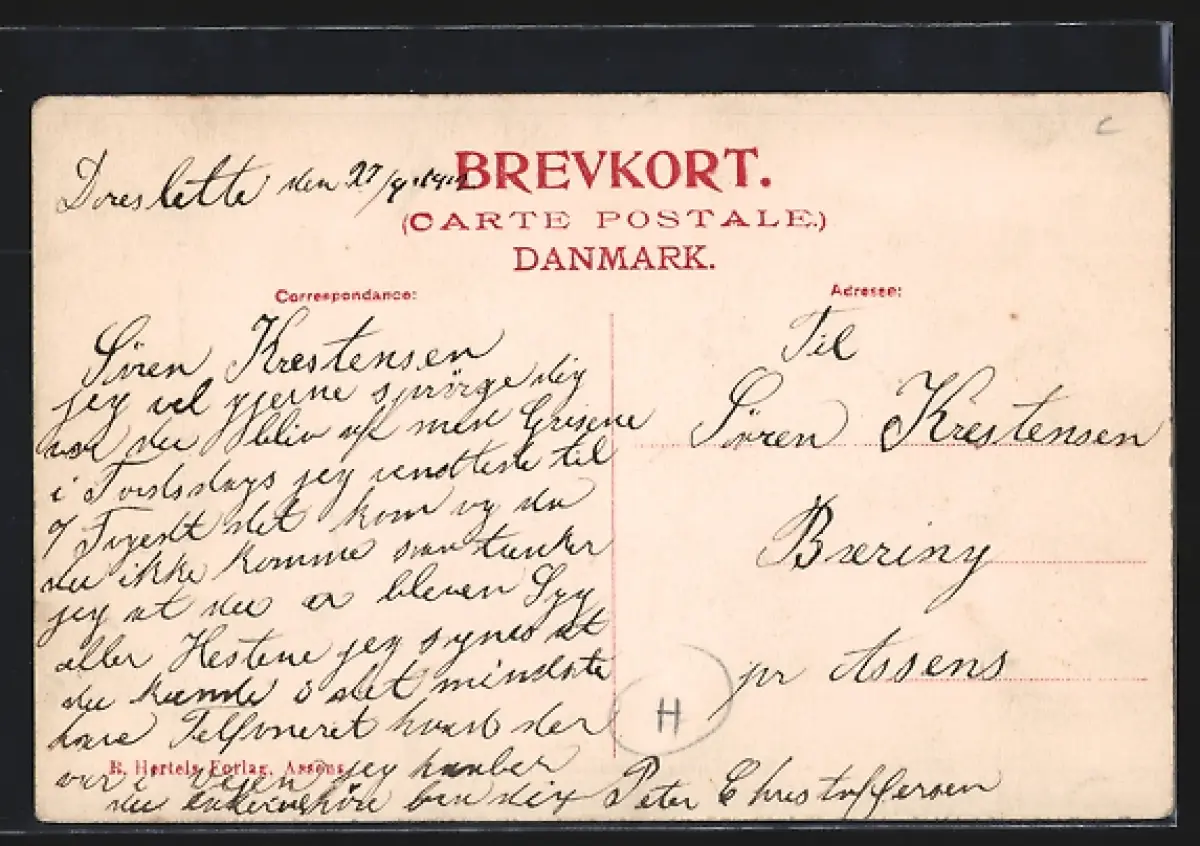 Doreslette den 27/9.
BREVKORT.
(CARTE POSTALE.)
DANMARK.
Correspondance:
Adresse:
Sören Krestensen
jeg vel gjerne spörge dig
du bliv af med Grisene
i Torsdags jeg vendtede til
7 det kom og da
du ikke komme saa tænker
jeg at du er bleven Syg
aller Hestene jeg synes at
du kunde i det mindste
have Telfoneret hvad der
var i Vejen jeg haaber
du Peter Christoffersen
R. Hertels Forlag, Assens
Til
Sören Krestensen
Bæring
pr Assens
H